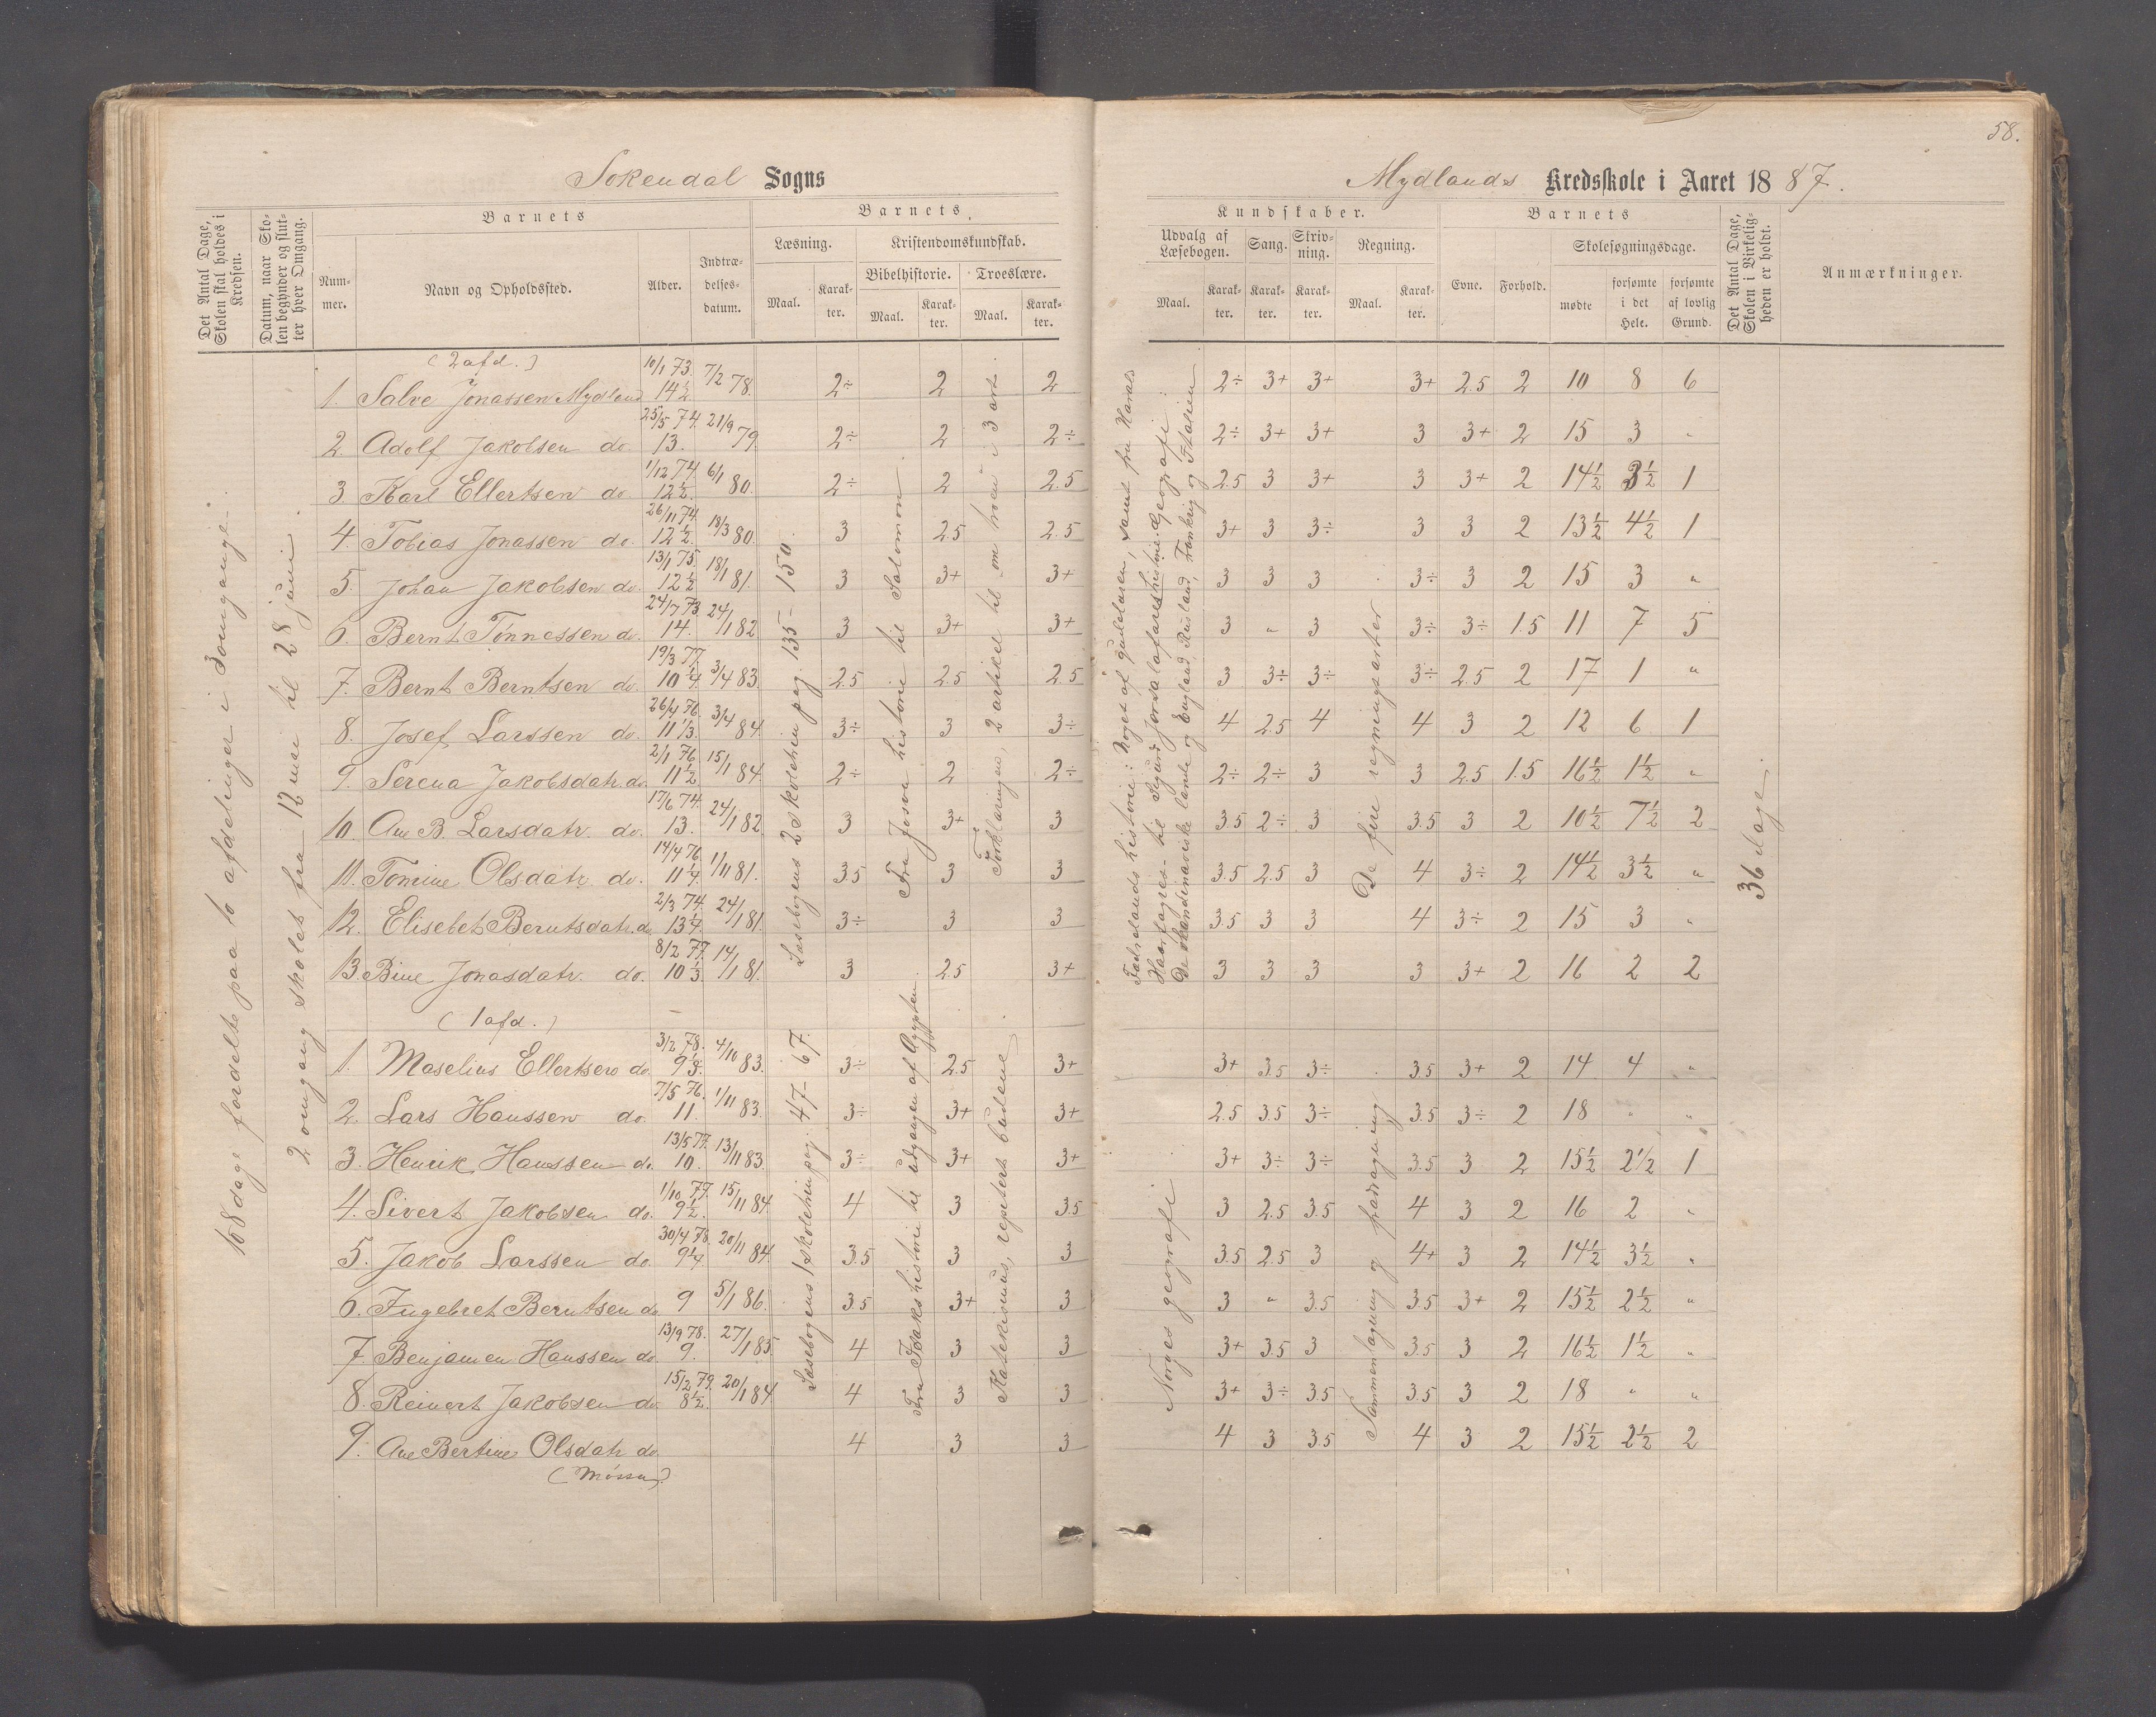 58.
Sokendal Sogns
Mydlands Kredsskole i Aaret 1887.
Det Antal Dage, Skolen skal holdes i Kredsen.
Datum, naar Skolen begynder og slutter hver Omgang.
Barnets
Nummer.
Navn og Opholdssted.
Alder.
Indtrædelsesdatum.
Barnets
Læsning.
Maal.
Karakter.
Kristendomskundskab.
Bibelhistorie.
Maal.
Karakter.
Troeslære.
Maal.
Karakter.
Kundskaber.
Udvalg af Læsebogen.
Maal.
Karakter.
Sang.
Karakter.
Skrivning.
Karakter.
Regning.
Maal.
Karakter.
Barnets
Evne.
Forhold.
Skolesøgningsdage.
mødte
forsømte i det Hele.
forsømte af lovlig Grund.
Det Antal Dage, Skolen i Virkeligheden er holdt.
Anmærkninger.
108 dage fordelte paa to afdelinger i 3 omgange.
2 omgang skolet fra 12 mai til 28 juni.
Læsebogens 2 skoletrin pag. 135-150.
Fra Josva historie til Salomon.
Forklaringen, 2 artikel til om troen i 3 art.
Fædrelandshistorie: Noget af gudelæren, samt fra Harald
Haarfagres- til Sigurd Jorsalafares historie. Geografi:
De skandinaviske lande og England, Rusland, Frankrig og Italien
De fire regningsarter
36 dage.
(2 afd.)
1. Salve Jonassen Mydland 10/1 73. 14 1/2 7/2 78. 2÷ 2 2 2÷ 3+ 3+ 3+ 2.5 2 10 8 6
2. Adolf Jakobsen do. 25/5 74. 13. 21/9 79. 2÷ 2 2÷ 2÷ 3+ 3+ 3 3+ 2 15 3 "
3. Karl Ellertsen do. 1/12 74 12 1/2. 6/1 80. 2÷ 2 2.5 2.5 3 3+ 3 3+ 2 14 1/2 3 1/2 1
4. Tobias Jonassen do. 26/11 74. 12 1/2. 18/3 80. 3 2.5 2.5 3+ 3 3÷ 3 3 2 13 1/2 4 1/2 1
5. Johan Jakobsen do. 13/1 75. 12 1/2 18/1 81. 3 3+ 3+ 3 3 3 3÷ 3 2 15 3 "
6. Bernt Tønnessen do. 24/7 73 14. 24/1 82 3 3+ 3+ 3 " 3 3÷ 3÷ 1.5 11 7 5
7. Bernt Berntsen do. 19/3 77. 10 1/4. 3/4 83. 2.5 2.5 2.5 3 3÷ 3÷ 3÷ 2.5 2 17 1 "
8. Josef Larssen do. 26/4 76. 11 1/3. 3/4 84. 3÷ 3 3÷ 4 2.5 4 4 3 2 12 6 1
9. Serena Jakobsdatr. do. 2/1 76 11 1/2 15/1 84. 2÷ 2 2÷ 2÷ 2÷ 3 3 2.5 1.5 16 1/2 1 1/2 "
10. Ane B. Larsdatr. do. 17/6 74. 13. 24/1 82. 3 3+ 3 3.5 2÷ 3 3.5 3 2 10 1/2 7 1/2 2
11. Tomine Olsdatr. do. 14/4 76. 11 1/4. 1/11 81. 3.5 3 3 3.5 2.5 3 4 3÷ 2 14 1/2 3 1/2 "
12. Elisebet Berntsdatr. do. 2/3 74. 13 1/4. 24/1 81. 3÷ 3 3 3.5 3 3 4 3÷ 2 15 3 "
13. Bine Jonasdatr. do. 8/2 77. 10 1/3. 14/1 81. 3 2.5 3+ 3 3 3 3 3+ 2 16 2 2
(1 afd.)
Læsebogens 1 skoletrin pag. 47-67.
Fra Isaks historie til udgangen af Ægypten
Katekismus, repetert budene.
Norges geografi
Sammenlægning og fradragning
1. Maselius Ellertsen do. 3/2 78. 9 1/3. 4/10 83. 3÷ 2.5 3+ 3+ 3.5 3÷ 3.5 3+ 2 14 4 "
2. Lars Hanssen do. 7/5 76. 11. 1/11 83. 3÷ 3+ 3+ 2.5 3.5 3÷ 3.5 3÷ 2 18 " "
3. Henrik Hanssen do. 13/5 77. 10. 13/11 83. 3÷ 3+ 3+ 3+ 3÷ 3÷ 3.5 3 2 15 1/2 2 1/2 1
4. Sivert Jakobsen do. 1/10 77. 9 1/2. 15/11 84 4 3 3.5 3 2.5 3.5 4 3 2 16 2 "
5. Jakob Larssen do. 30/4 78. 9 1/4 20/11 84. 3.5 3 3 3.5 2.5 3 4+ 3 2 14 1/2 3 1/2 "
6. Ingebret Berntsen do. 9 5/1 86. 3.5 3+ 3 3 " 3.5 3.5 3+ 2 15 1/2 2 1/2 "
7. Benjamen Hanssen do. 13/9 78. 9. 27/1 85 4 3 3 3+ 3.5 3 3.5 3 2 16 1/2 1 1/2 "
8. Reinert Jakobsen do. 15/2 79. 8 1/2. 20/1 84. 4 3 3 3+ 3÷ 3.5 3.5 3 2 18 " "
9. Ane Bertine Olsdatr do. 4 3 3 4 3 3.5 4 3 2 15 1/2 2 1/2 2